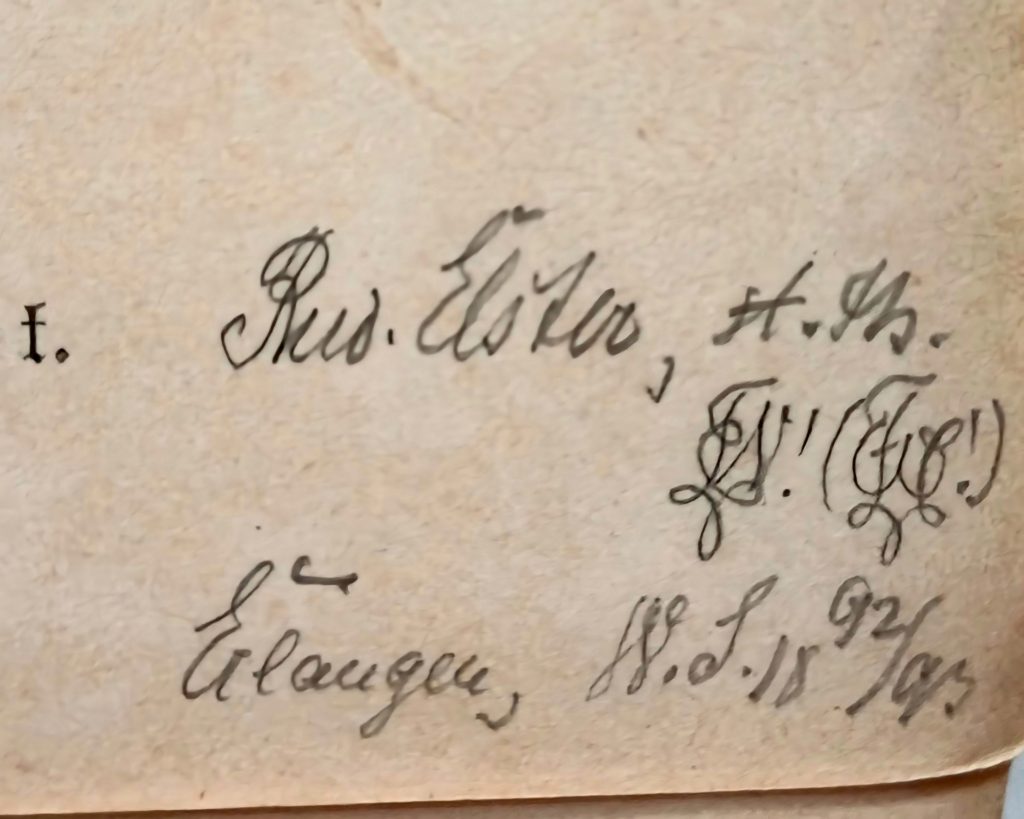 I. Rud. Elster, st. th.
Erlangen, W. S. 18 92/93